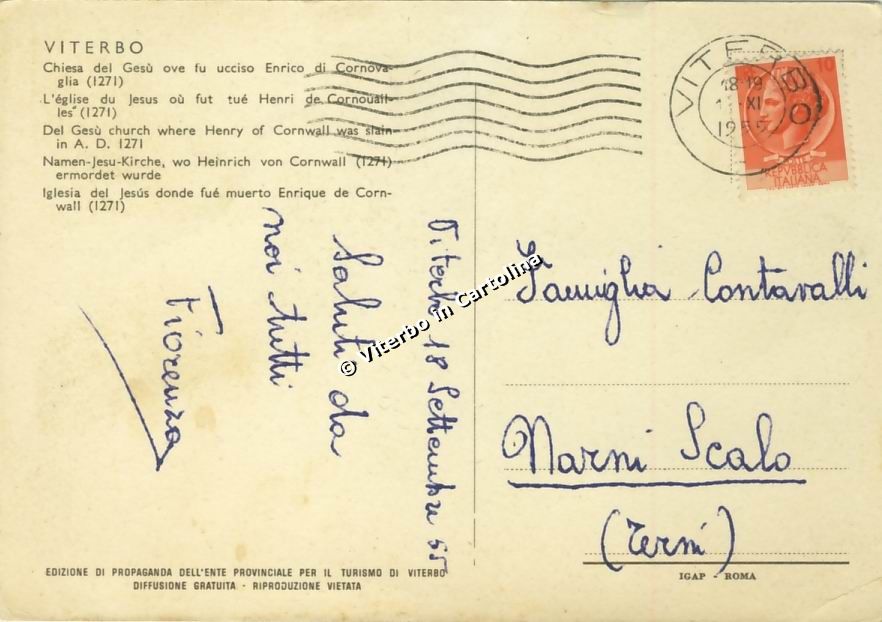 VITERBO
Chiesa del Gesù ove fu ucciso Enrico di Cornova-
glia (1271)
L'église du Jesus où fut tué Henri de Cornouail-
les" (1271)
Del Gesù church where Henry of Cornwall was slain
in A. D. 1271
Namen-Jesu-Kirche, wo Heinrich von Cornwall (1271)
ermordet wurde
Iglesia del Jesús donde fué muerto Enrique de Corn-
wall (1271)
VITERBO
18-19
XI
1955
REPVBBLICA
ITALIANA
Viterbo 18 Settembre 55
Saluti da
noi tutti
Fiorenza
© Viterbo in Cartolina
Famiglia Contavalli
Narni Scalo
(Terni)
EDIZIONE DI PROPAGANDA DELL'ENTE PROVINCIALE PER IL TURISMO DI VITERBO
DIFFUSIONE GRATUITA - RIPRODUZIONE VIETATA
IGAP - ROMA